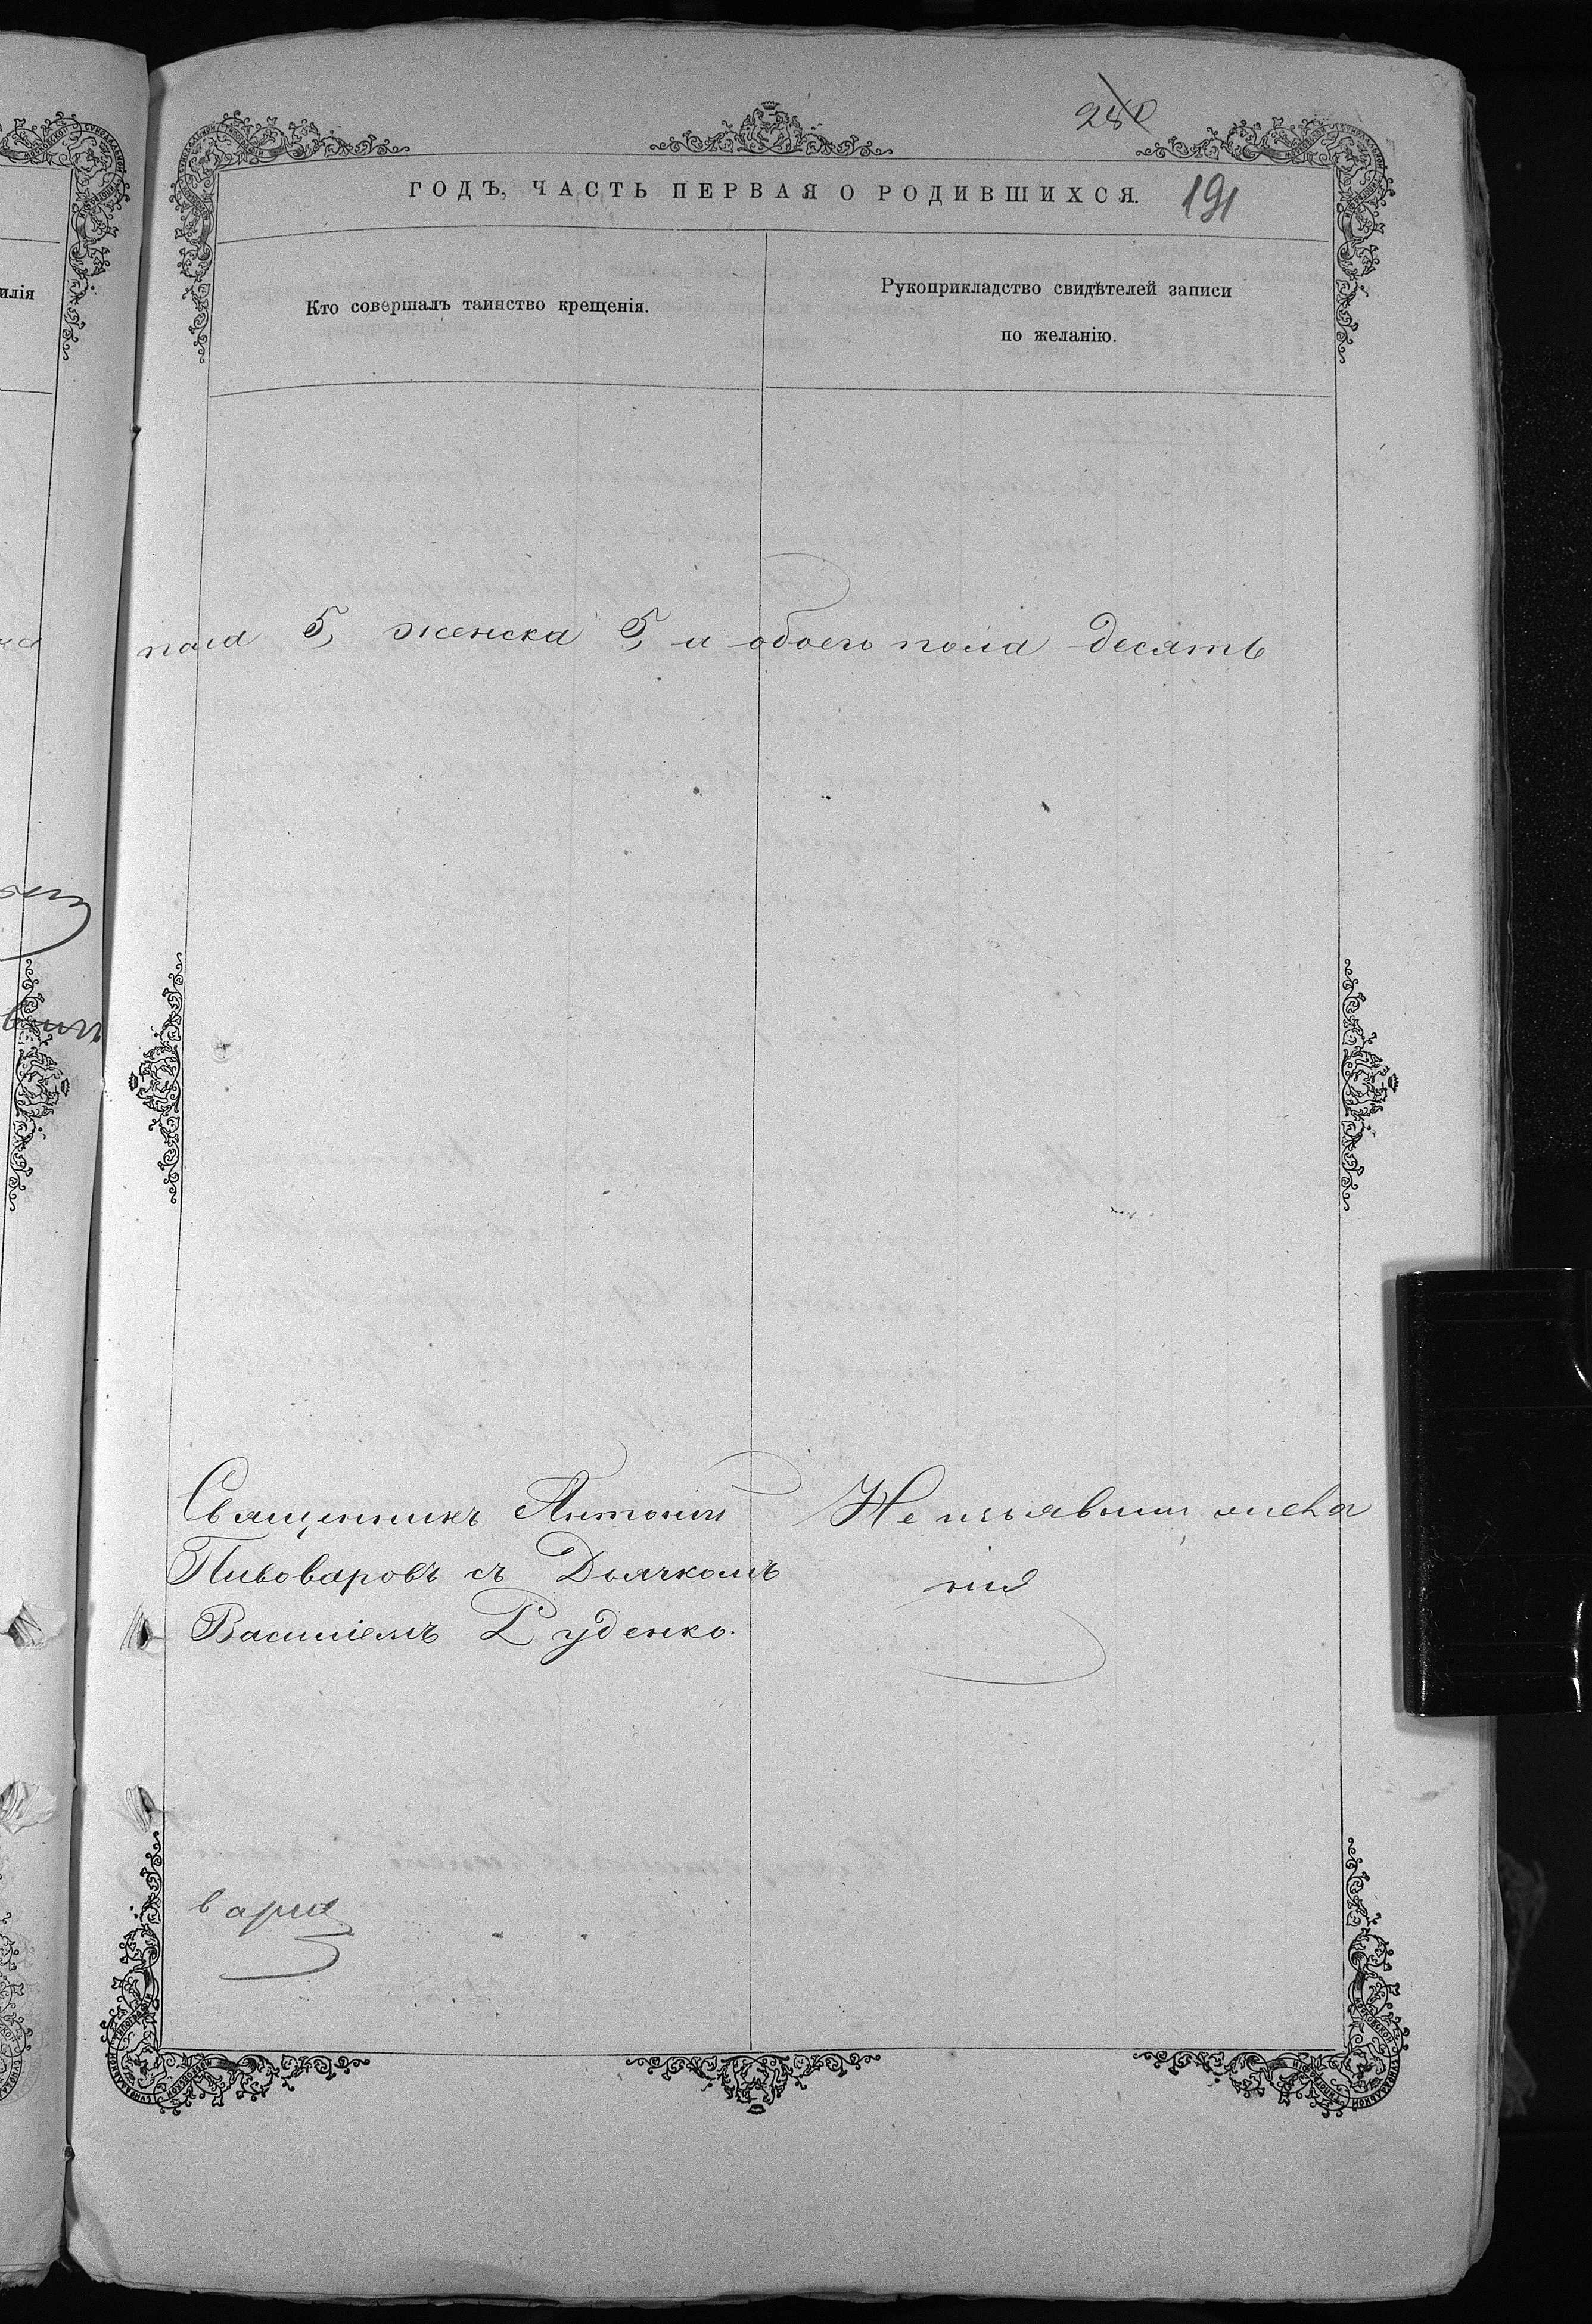 280
ГОДЪ, ЧАСТЬ ПЕРВАЯ О РОДИВШИХСЯ.
191
илія
Кто совершалъ таинство крещенія.
Рукоприкладство свидѣтелей записи
по желанію.
пола 5, женска 5, а обоего пола десять
Священникъ Антоній
Пивоваровъ съ Дьячкомъ
Василіемъ Руденко.
Не изъявили жела
нія
вари